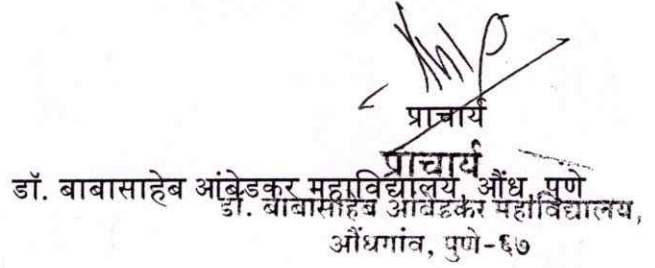 प्राचार्य
प्राचार्य
डॉ. बाबासाहेब आंबेडकर महाविद्यालय, औंध, पुणे
डॉ. बाबासाहेब आंबेडकर महाविद्यालय,
औंधगांव, पुणे-६७